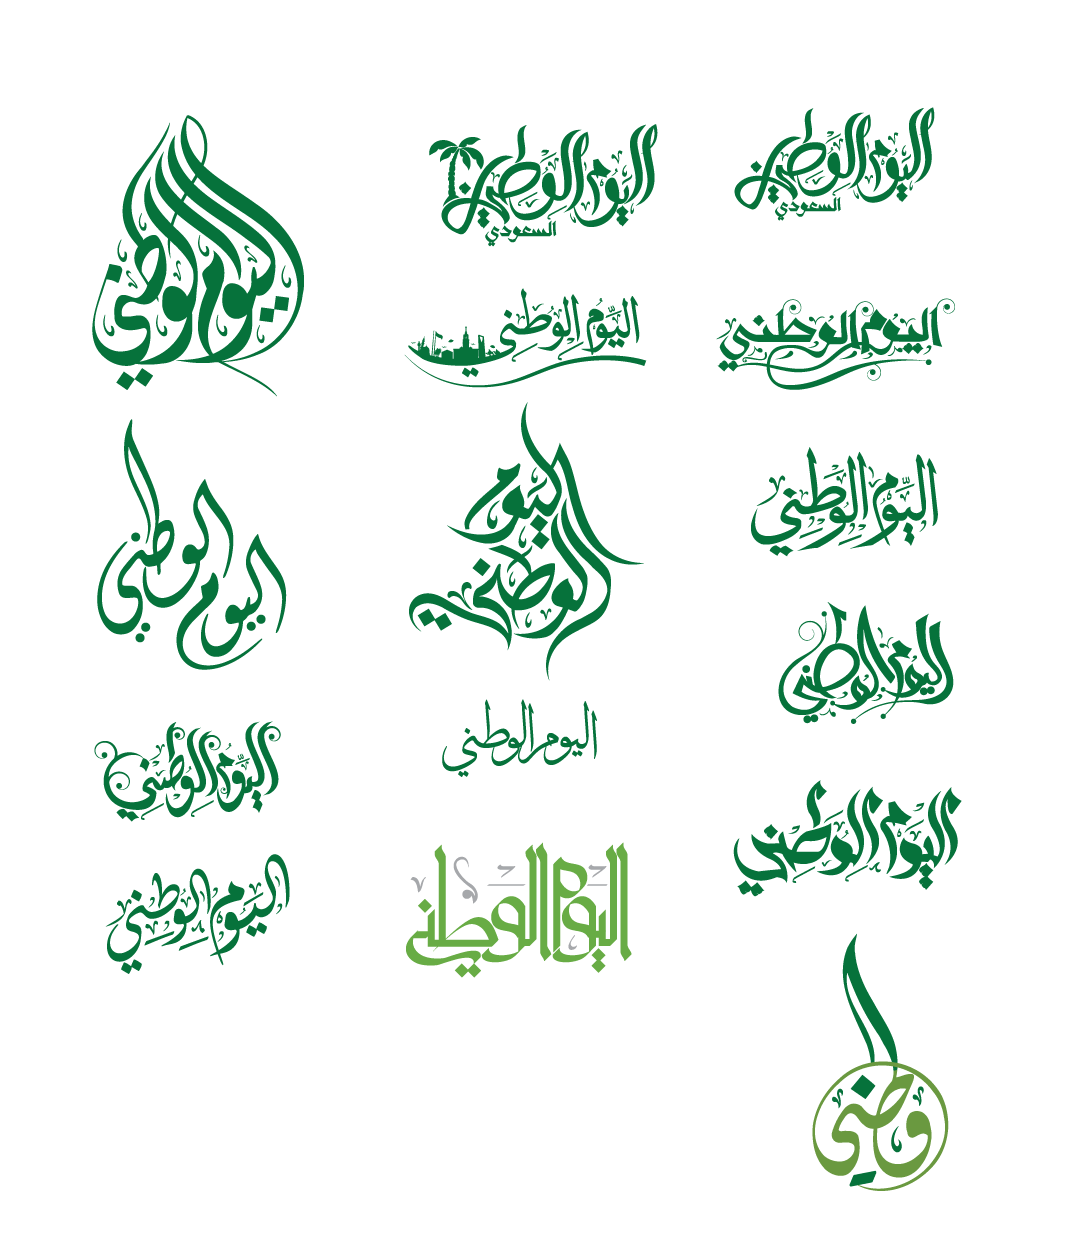 اليوم الوطني
السعودي
اليوم الوطني
السعودي
اليوم الوطني
اليوم الوطني
اليوم الوطني
اليوم الوطني
اليوم الوطني
اليوم
الوطني
اليوم الوطني
اليوم الوطني
اليوم الوطني
اليوم الوطني
اليوم الوطني
اليوم الوطني
اليوم الوطني
وطني